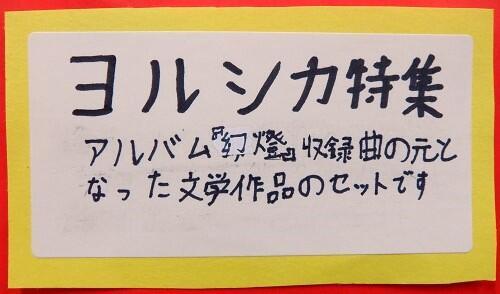 ヨルシカ特集
アルバム『幻燈』収録曲の元と
なった文学作品のセットです